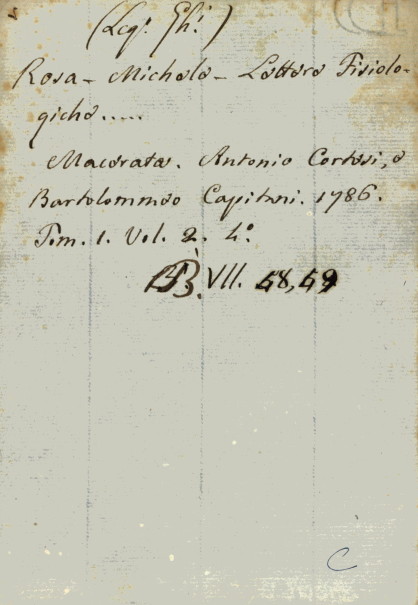 (Leg. Gh.)
Rosa - Michele - Lettere Fisiolo-
giche.....
Macerata. Antonio Cortesi, e
Bartolommeo Capitani. 1786.
Tom. 1. Vol. 2. 4°.
VII. 48, 49
C